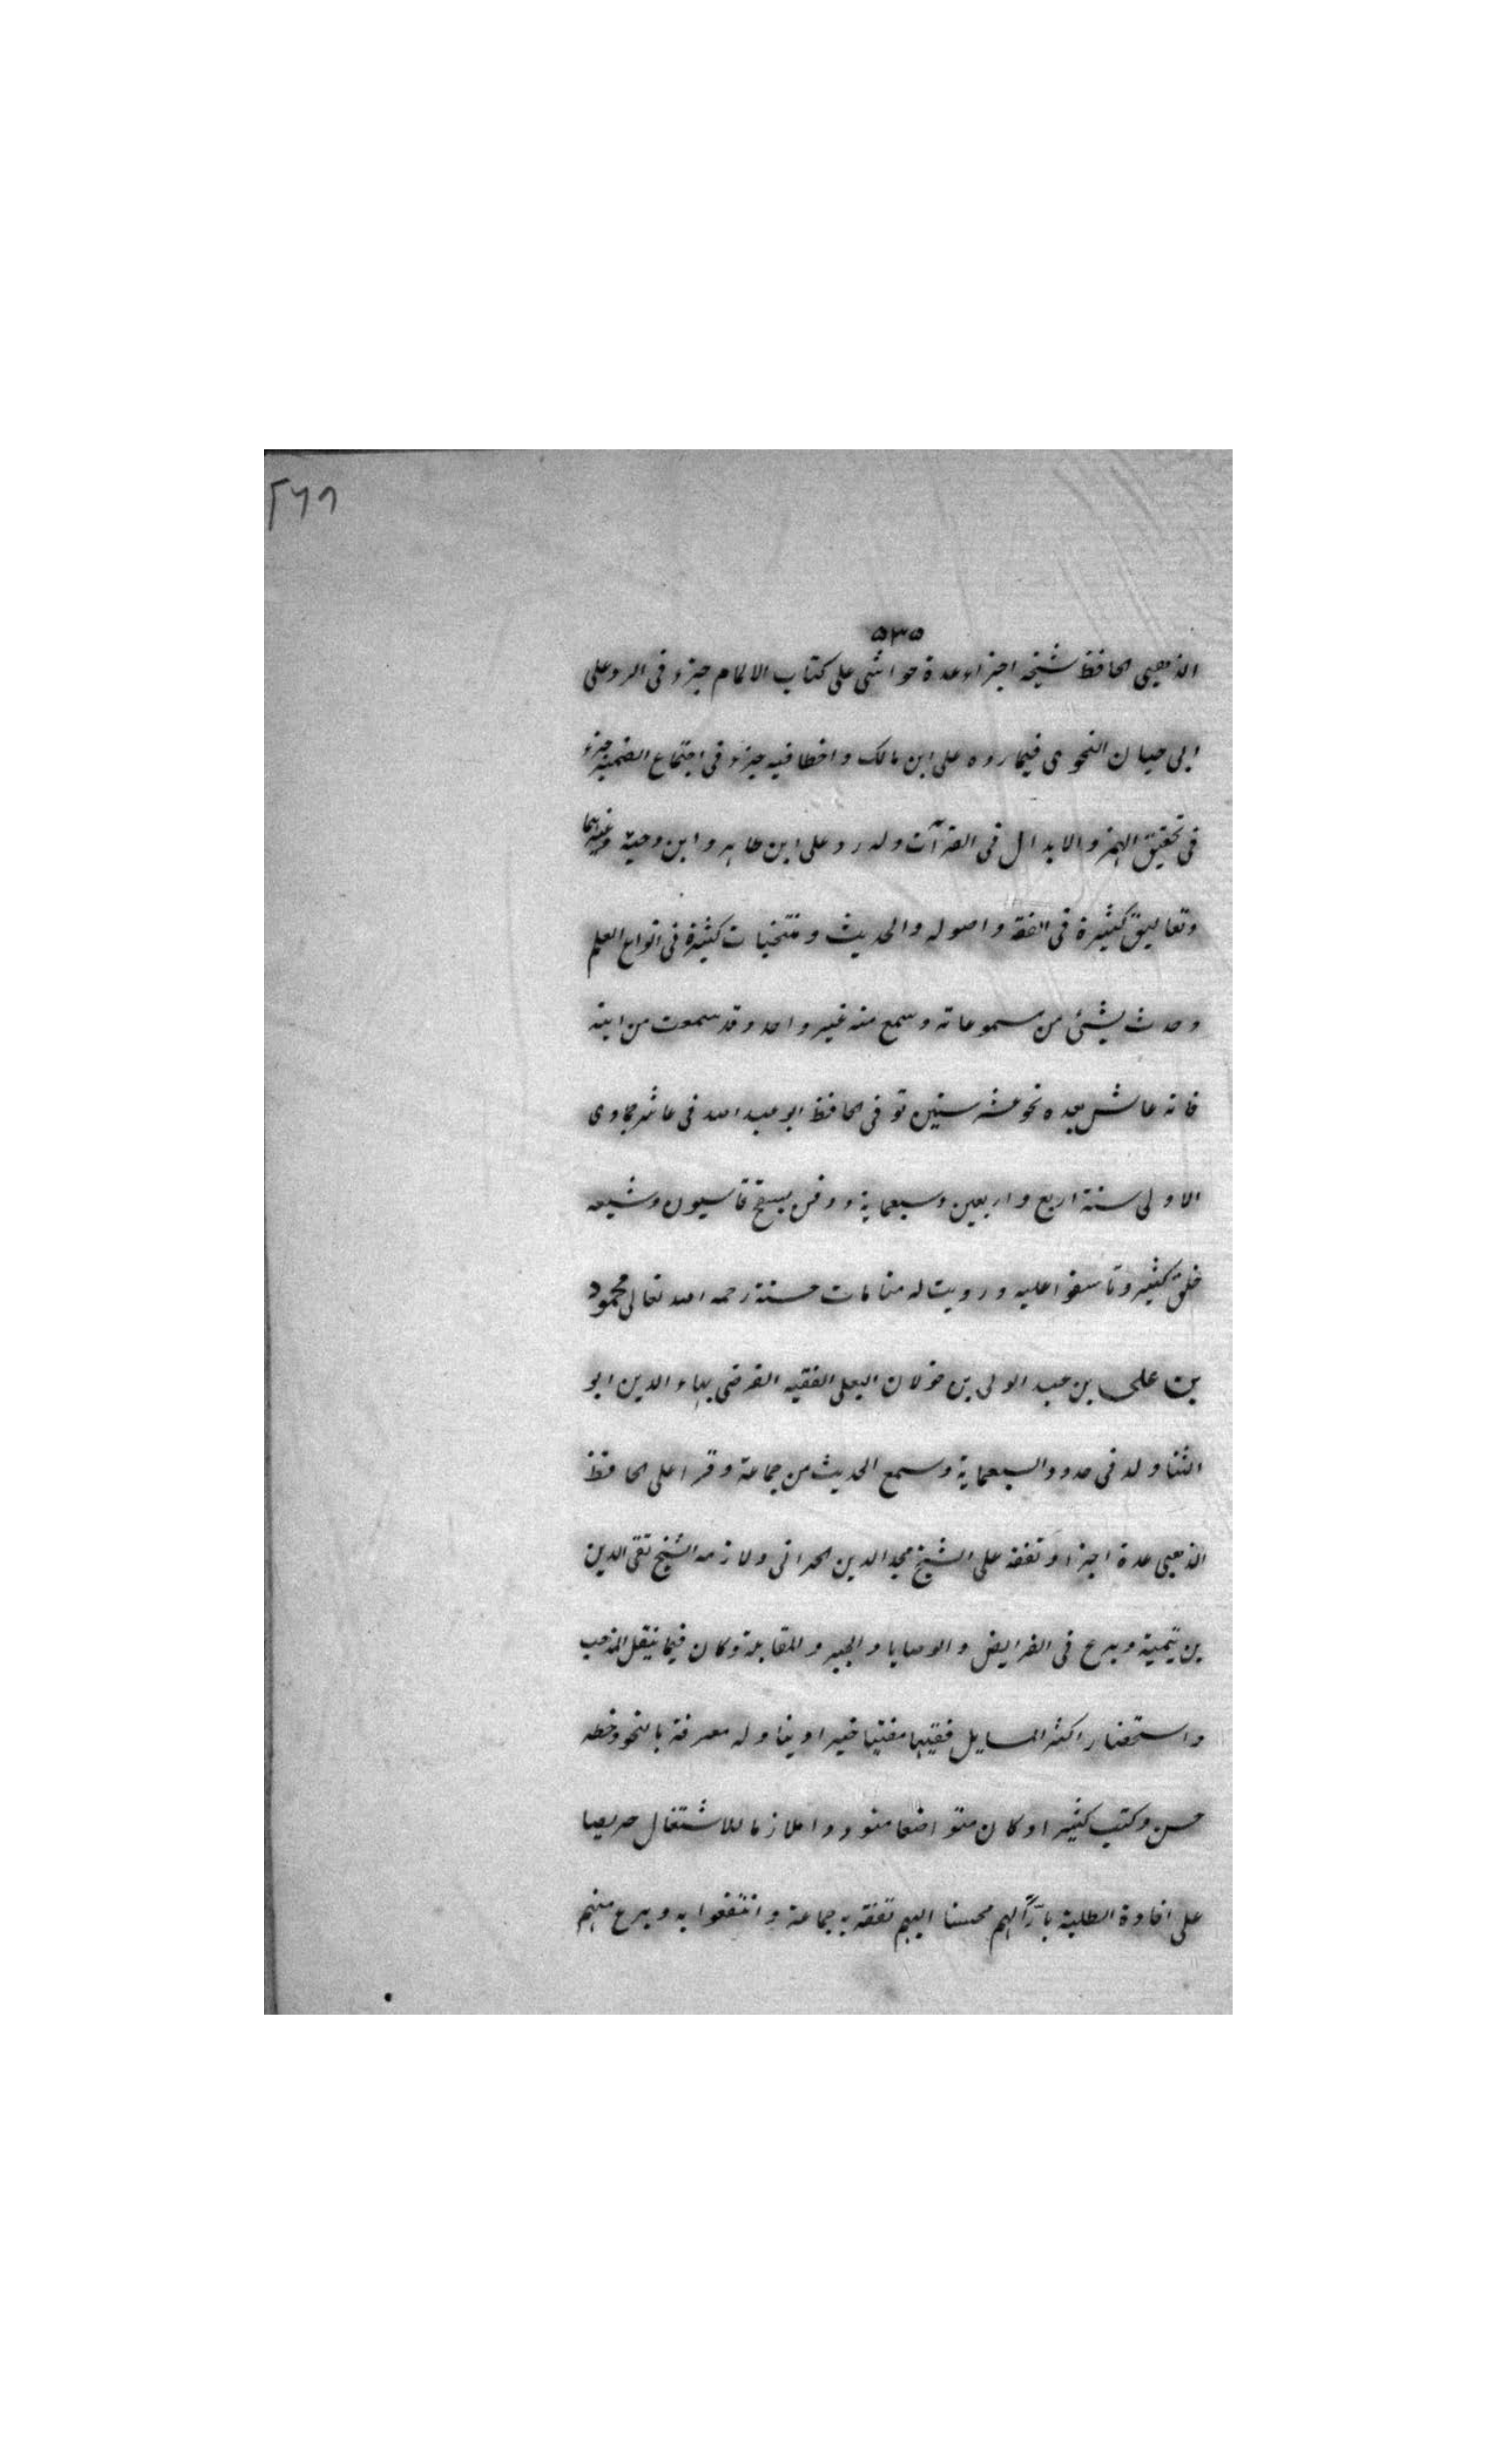 ٢٦٨
٥٣٥
الذهبى الحافظ شيخه اجزاء عدة حواشى على كتاب الالمام جزء فى الرد على
ابى حيان النحوى فيما رده على ابن مالك واخطا فيه جزء فى اجتماع الضميرين جزء
فى تحقيق الهمز والابدال فى القرآت وله رد على ابن طاهر وابن دحية وغيرهما
وتعاليق كثيرة فى الفقه واصوله والحديث ومنتخبات كثيرة فى انواع العلم
وحدث بشىئ من مسموعاته وسمع منه غير واحد وقد سمعت من ابيه
فانه عاش بعده نحو عشر سنين توفى الحافظ ابو عبد الله فى عاشر جمادى
الاولى سنة اربع واربعين وسبعماية ودفن بسفح قاسيون وشيعه
خلق كثير وتاسفوا عليه ورويت له منامات حسنة رحمه الله تعالى محمود
بن على بن عبد الولى بن خولان البعلى الفقيه الفرضى بهاء الدين ابو
الثنا ولد فى حدود السبعماية وسمع الحديث من جماعة وقرا على الحافظ
الذهبى عدة اجزا وتفقه على الشيخ مجد الدين الحرانى ولازمه الشيخ تقى الدين
بن تيمية وبرع فى الفرايض والوصايا والجبر والمقابلة وكان فيما ينقل المذهب
واستحضار اكثر المسايل فقيها مفتيا خيرا دينا وله معرفة بالنحو وخطه
حسن وكتب كثيرا وكان متواضعا متوددا ملازما للاشتغال حريصا
على افادة الطلبة بارّاً لهم محسنا اليهم تفقه به جماعة وانتفعوا به وبرع منهم